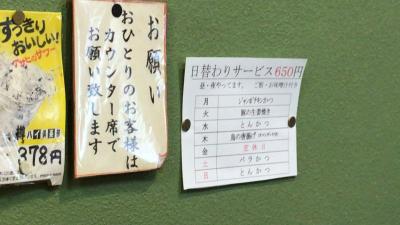 すっきり
おいしい!
378円
お願い
おひとりのお客様は
カウンター席で
お願い致します
日替わりサービス650円
昼・夜やってます。 ご飯・お味噌汁付き
月 ジャンボチキンかつ
火 豚の生姜焼き
水 とんかつ
木 鳥の唐揚げ
金 定休日
土 バラかつ
日 とんかつ